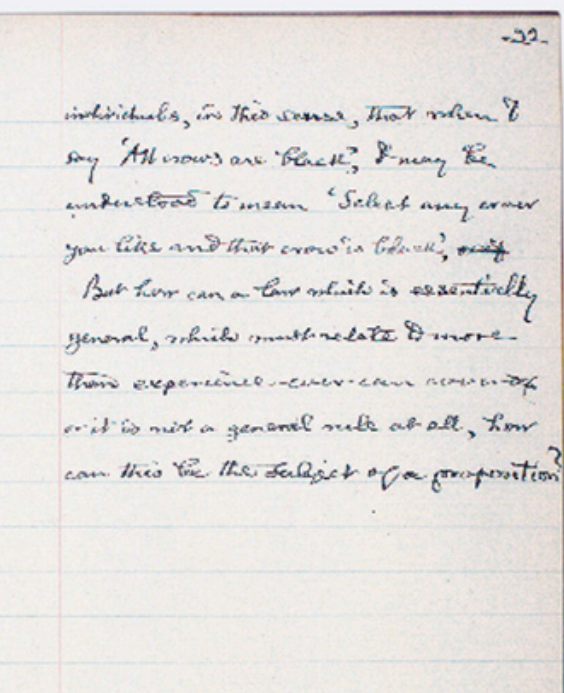 -22-
individuals, in this sense, that when I
say 'All crows are black', I may be
understood to mean 'Select any crow
you like and that crow is black',
But how can a law which is essentially
general, which must relate to more
than experience ever can cover
or it is not a general rule at all, how
can this be the subject of a proposition?